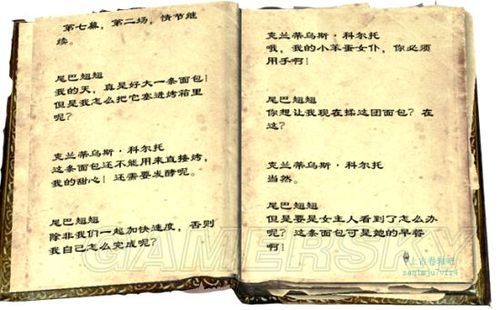 第七幕，第二场，情节继
续。
尾巴翘翘
我的天，真是好大一条面包！
但是我怎么把它塞进烤箱里
呢？
克兰蒂乌斯·科尔托
这条面包还不能用来直接烤，
我的甜心！还需要发酵呢。
尾巴翘翘
除非我们一起加快速度，否则
我自己怎么完成呢？
克兰蒂乌斯·科尔托
哦，我的小笨蛋女仆，你必须
用手啊！
尾巴翘翘
你想让我现在揉这团面包？在
这？
克兰蒂乌斯·科尔托
当然。
尾巴翘翘
但是要是女主人看到了怎么办
呢？这条面包可是她的早餐
啊！
GAMERSKY
@上古卷轴吧